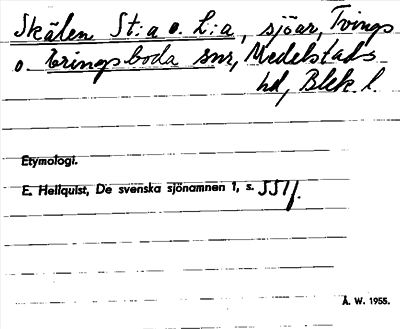 Skälen St:a o. L:a, sjöar, Tvings
o. Eringsboda snr, Medelstads
hd, Blek. l.
Etymologi.
E. Hellquist, De svenska sjönamnen 1, s. 551 f.
Å. W. 1955.